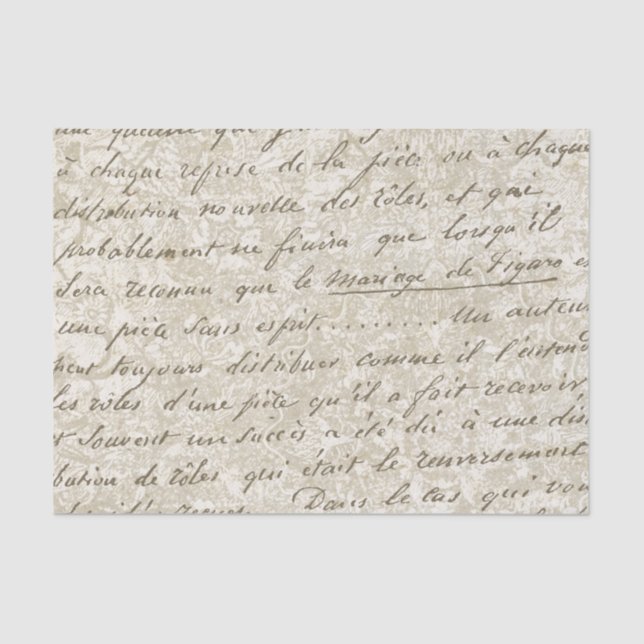 une que
à chaque reprise de la pièce ou à chaque
distribution nouvelle des rôles, et qui
probablement ne finira que lorsqu'il
Sera reconnu que le Mariage de Figaro es
une pièce Sans esprit......... Un auteur
peut toujours distribuer comme il l'entend
les rôles d'une pièce qu'il a fait recevoir
et Souvent un succès a été dû à une dis
bution de rôles qui était le renversement
Dans le cas qui vou